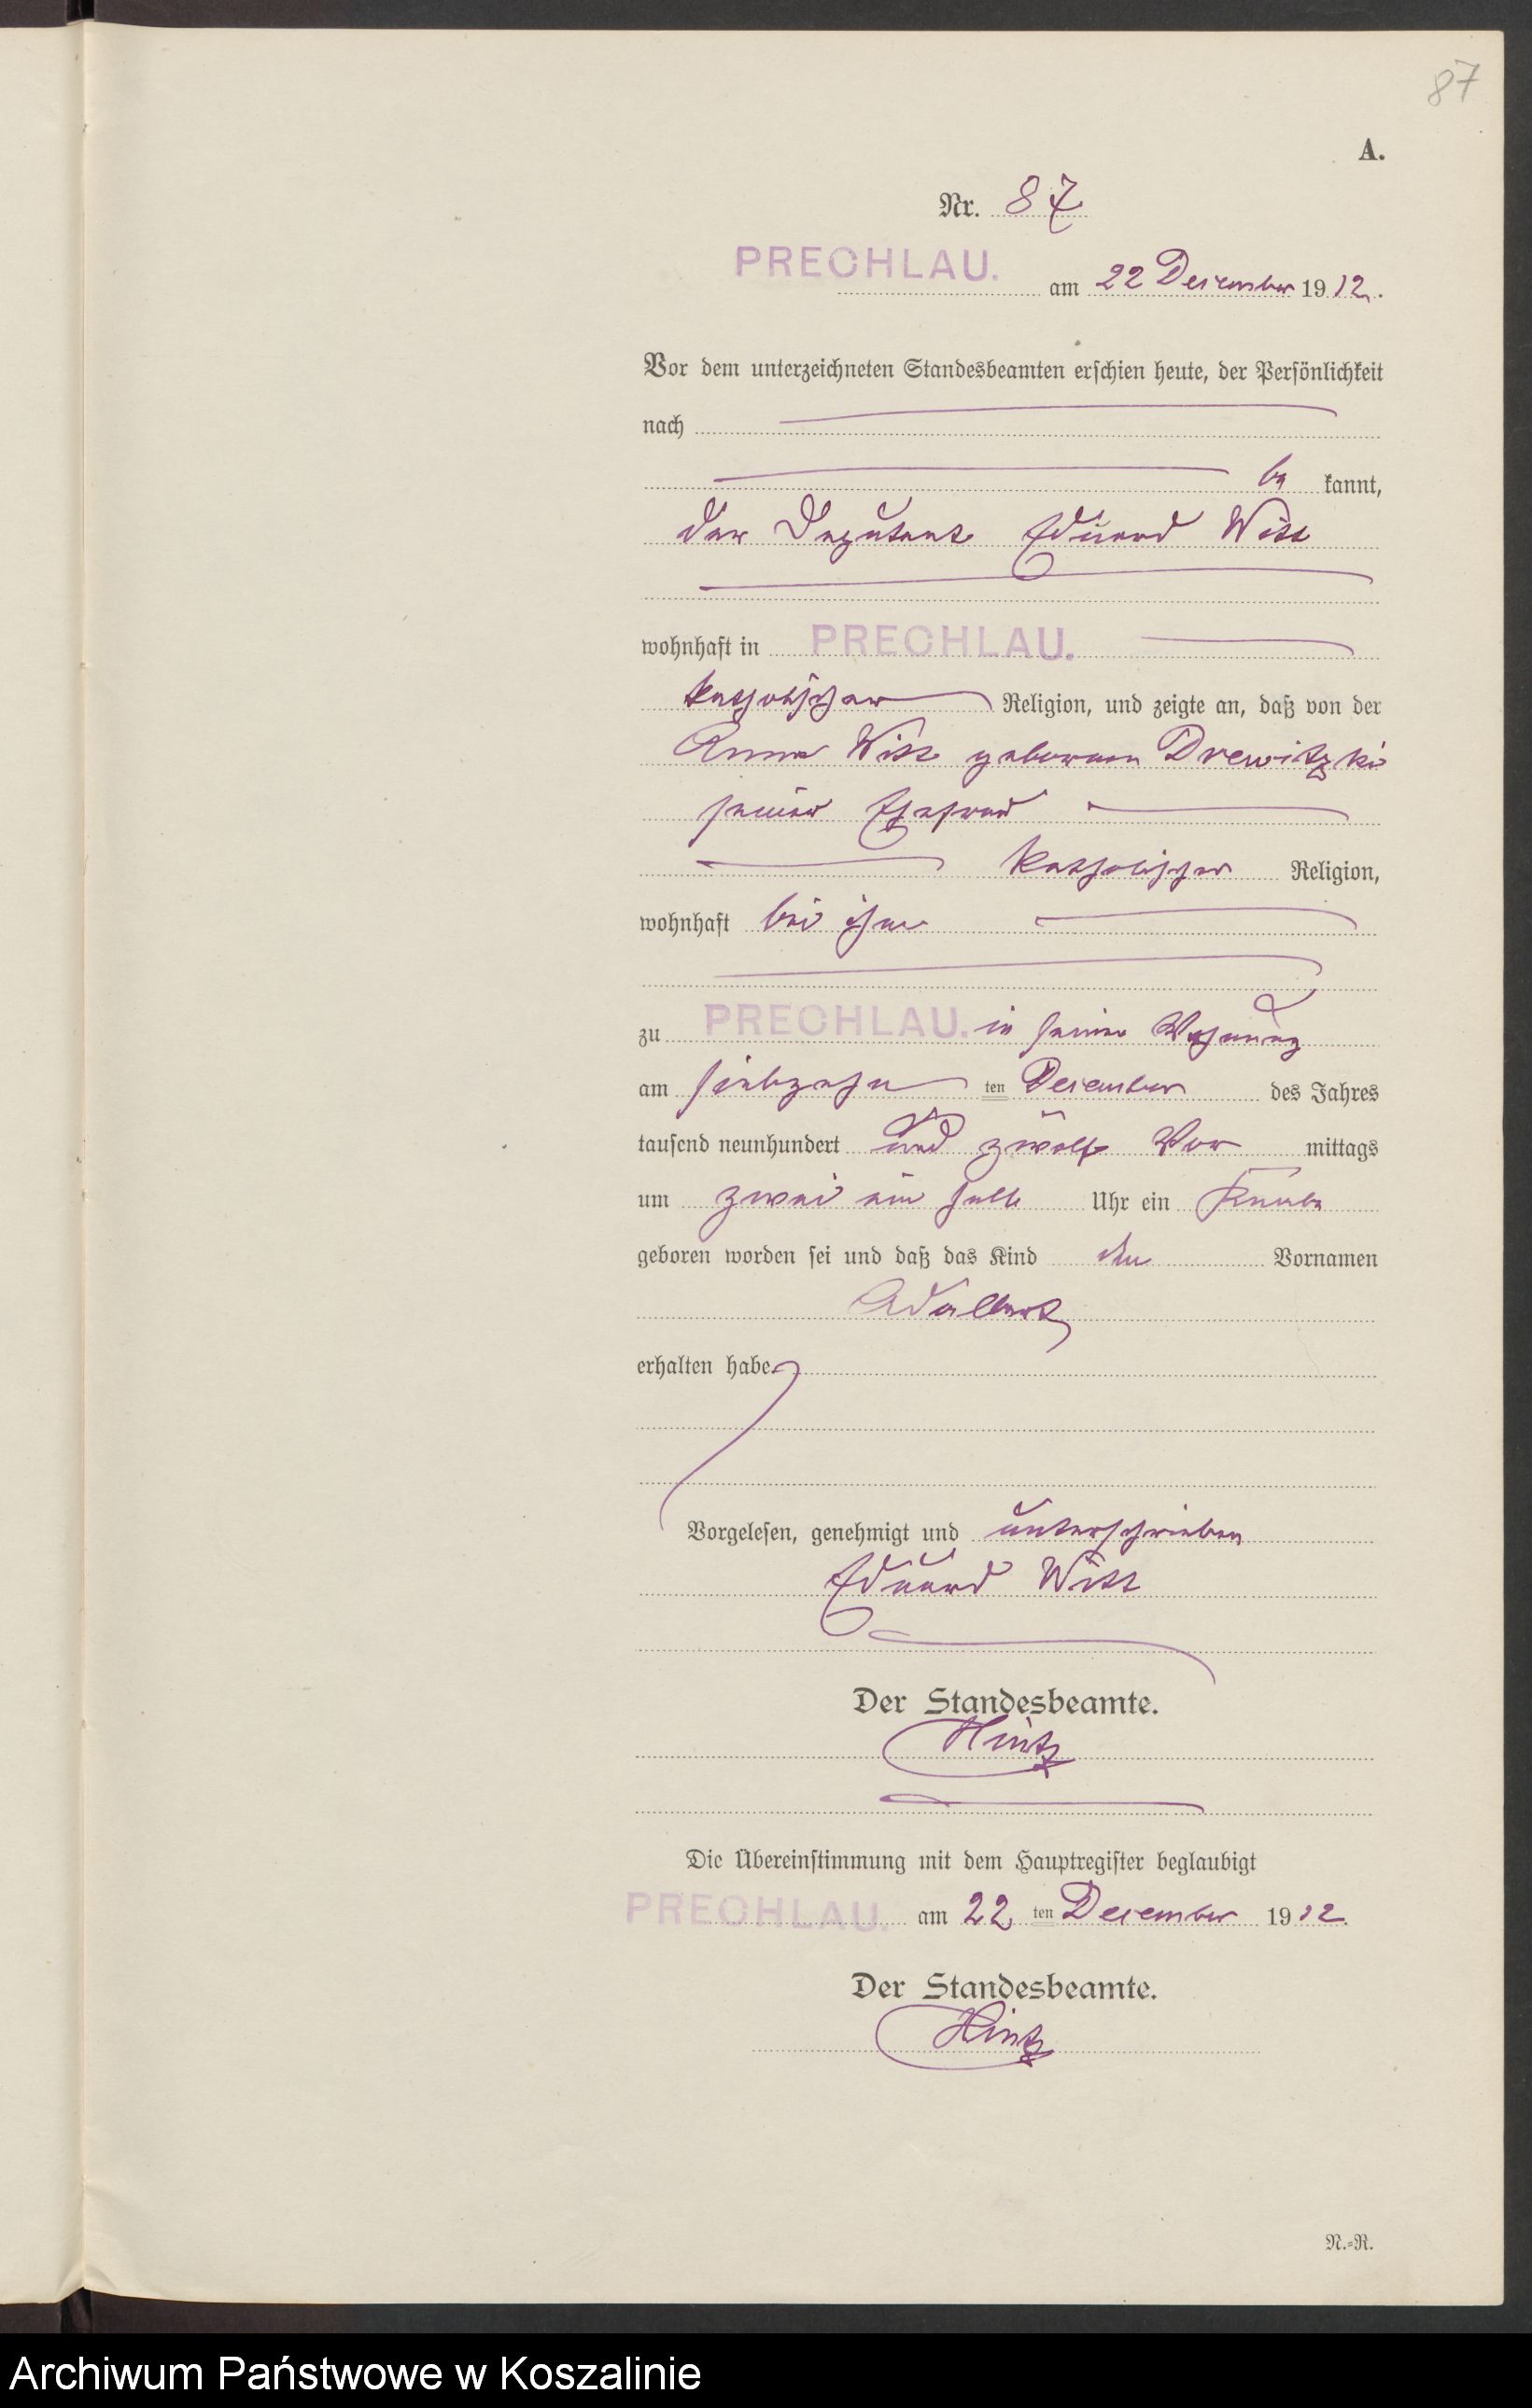 87
A.
Nr. 87
PRECHLAU. am 22 Dezember 1912.
Vor dem unterzeichneten Standesbeamten erschien heute, der Persönlichkeit
nach
be kannt,
der Deputant Eduard Witt
wohnhaft in PRECHLAU.
katholischer Religion, und zeigte an, daß von der
Anna Witt geborenen Drewitzki
seiner Ehefrau
katholischer Religion,
wohnhaft bei ihm
zu PRECHLAU. in seiner Wohnung
am siebzehn ten Dezember des Jahres
tausend neunhundert und zwölf Vor mittags
um zwei ein halb Uhr ein Knabe
geboren worden sei und daß das Kind den Vornamen
Adalbert
erhalten habe.
Vorgelesen, genehmigt und unterschrieben
Eduard Witt
Der Standesbeamte.
Hintz
Die Übereinstimmung mit dem Hauptregister beglaubigt
PRECHLAU. am 22 ten Dezember 1912.
Der Standesbeamte.
Hintz
N.=R.
Archiwum Państwowe w Koszalinie